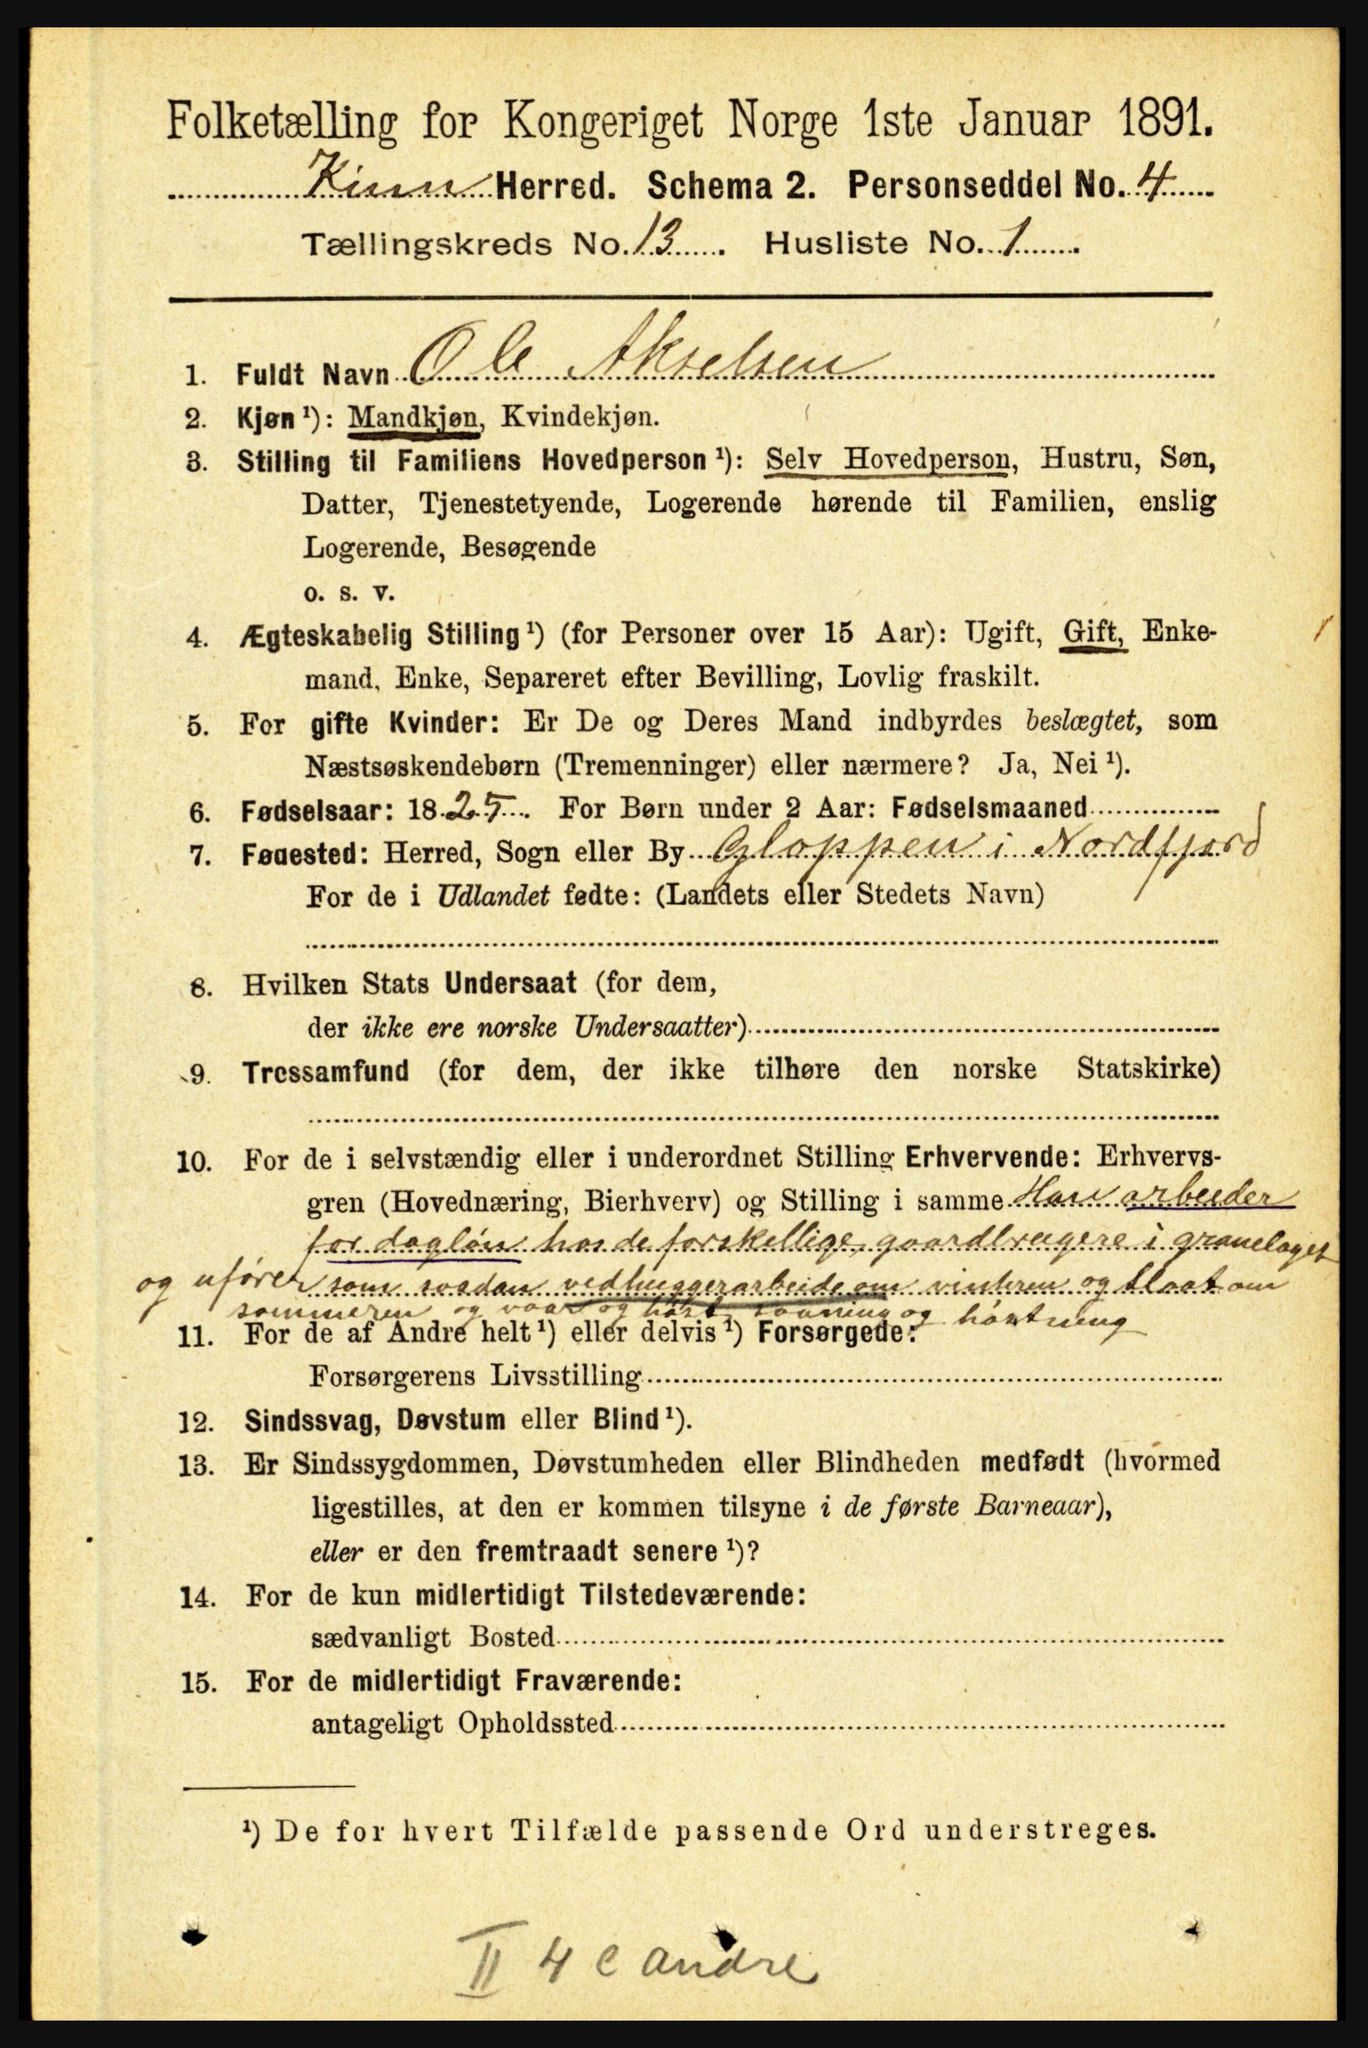 Folketælling for Kongeriget Norge 1ste Januar 1891.
Kinn Herred. Schema 2. Personseddel No. 4
Tællingskreds No. 13. Husliste No. 1
1. Fuldt Navn Ole Akselsen
2. Kjøn ¹): Mandkjøn, Kvindekjøn.
3. Stilling til Familiens Hovedperson ¹): Selv Hovedperson, Hustru, Søn,
Datter, Tjenestetyende, Logerende hørende til Familien, enslig
Logerende, Besøgende
o. s. v.
4. Ægteskabelig Stilling ¹) (for Personer over 15 Aar): Ugift, Gift, Enke-
mand, Enke, Separeret efter Bevilling, Lovlig fraskilt.
5. For gifte Kvinder: Er De og Deres Mand indbyrdes beslægtet, som
Næstsøskendebørn (Tremenninger) eller nærmere? Ja, Nei ¹).
6. Fødselsaar: 1825. For Børn under 2 Aar: Fødselsmaaned
7. Fødested: Herred, Sogn eller By Gloppen i Nordfjord
For de i Udlandet fødte: (Landets eller Stedets Navn)
8. Hvilken Stats Undersaat (for dem,
der ikke ere norske Undersaatter)
9. Trossamfund (for dem, der ikke tilhøre den norske Statskirke)
10. For de i selvstændig eller i underordnet Stilling Erhvervende: Erhvervs-
gren (Hovednæring, Bierhverv) og Stilling i samme Han arbeider
for dagløn hos de forskellige gaardbrugere i granelaget
og ufører som saadan vedhuggerarbeide om vinteren og slaat om
sommeren og vaar og høst og høstning
11. For de af Andre helt ¹) eller delvis ¹) Forsørgede:
Forsørgerens Livsstilling
12. Sindssvag, Døvstum eller Blind ¹).
13. Er Sindssygdommen, Døvstumheden eller Blindheden medfødt (hvormed
ligestilles, at den er kommen tilsyne i de første Barneaar),
eller er den fremtraadt senere ¹)?
14. For de kun midlertidigt Tilstedeværende:
sædvanligt Bosted
15. For de midlertidigt Fraværende:
antageligt Opholdssted
¹) De for hvert Tilfælde passende Ord understreges.
II 4 c andre